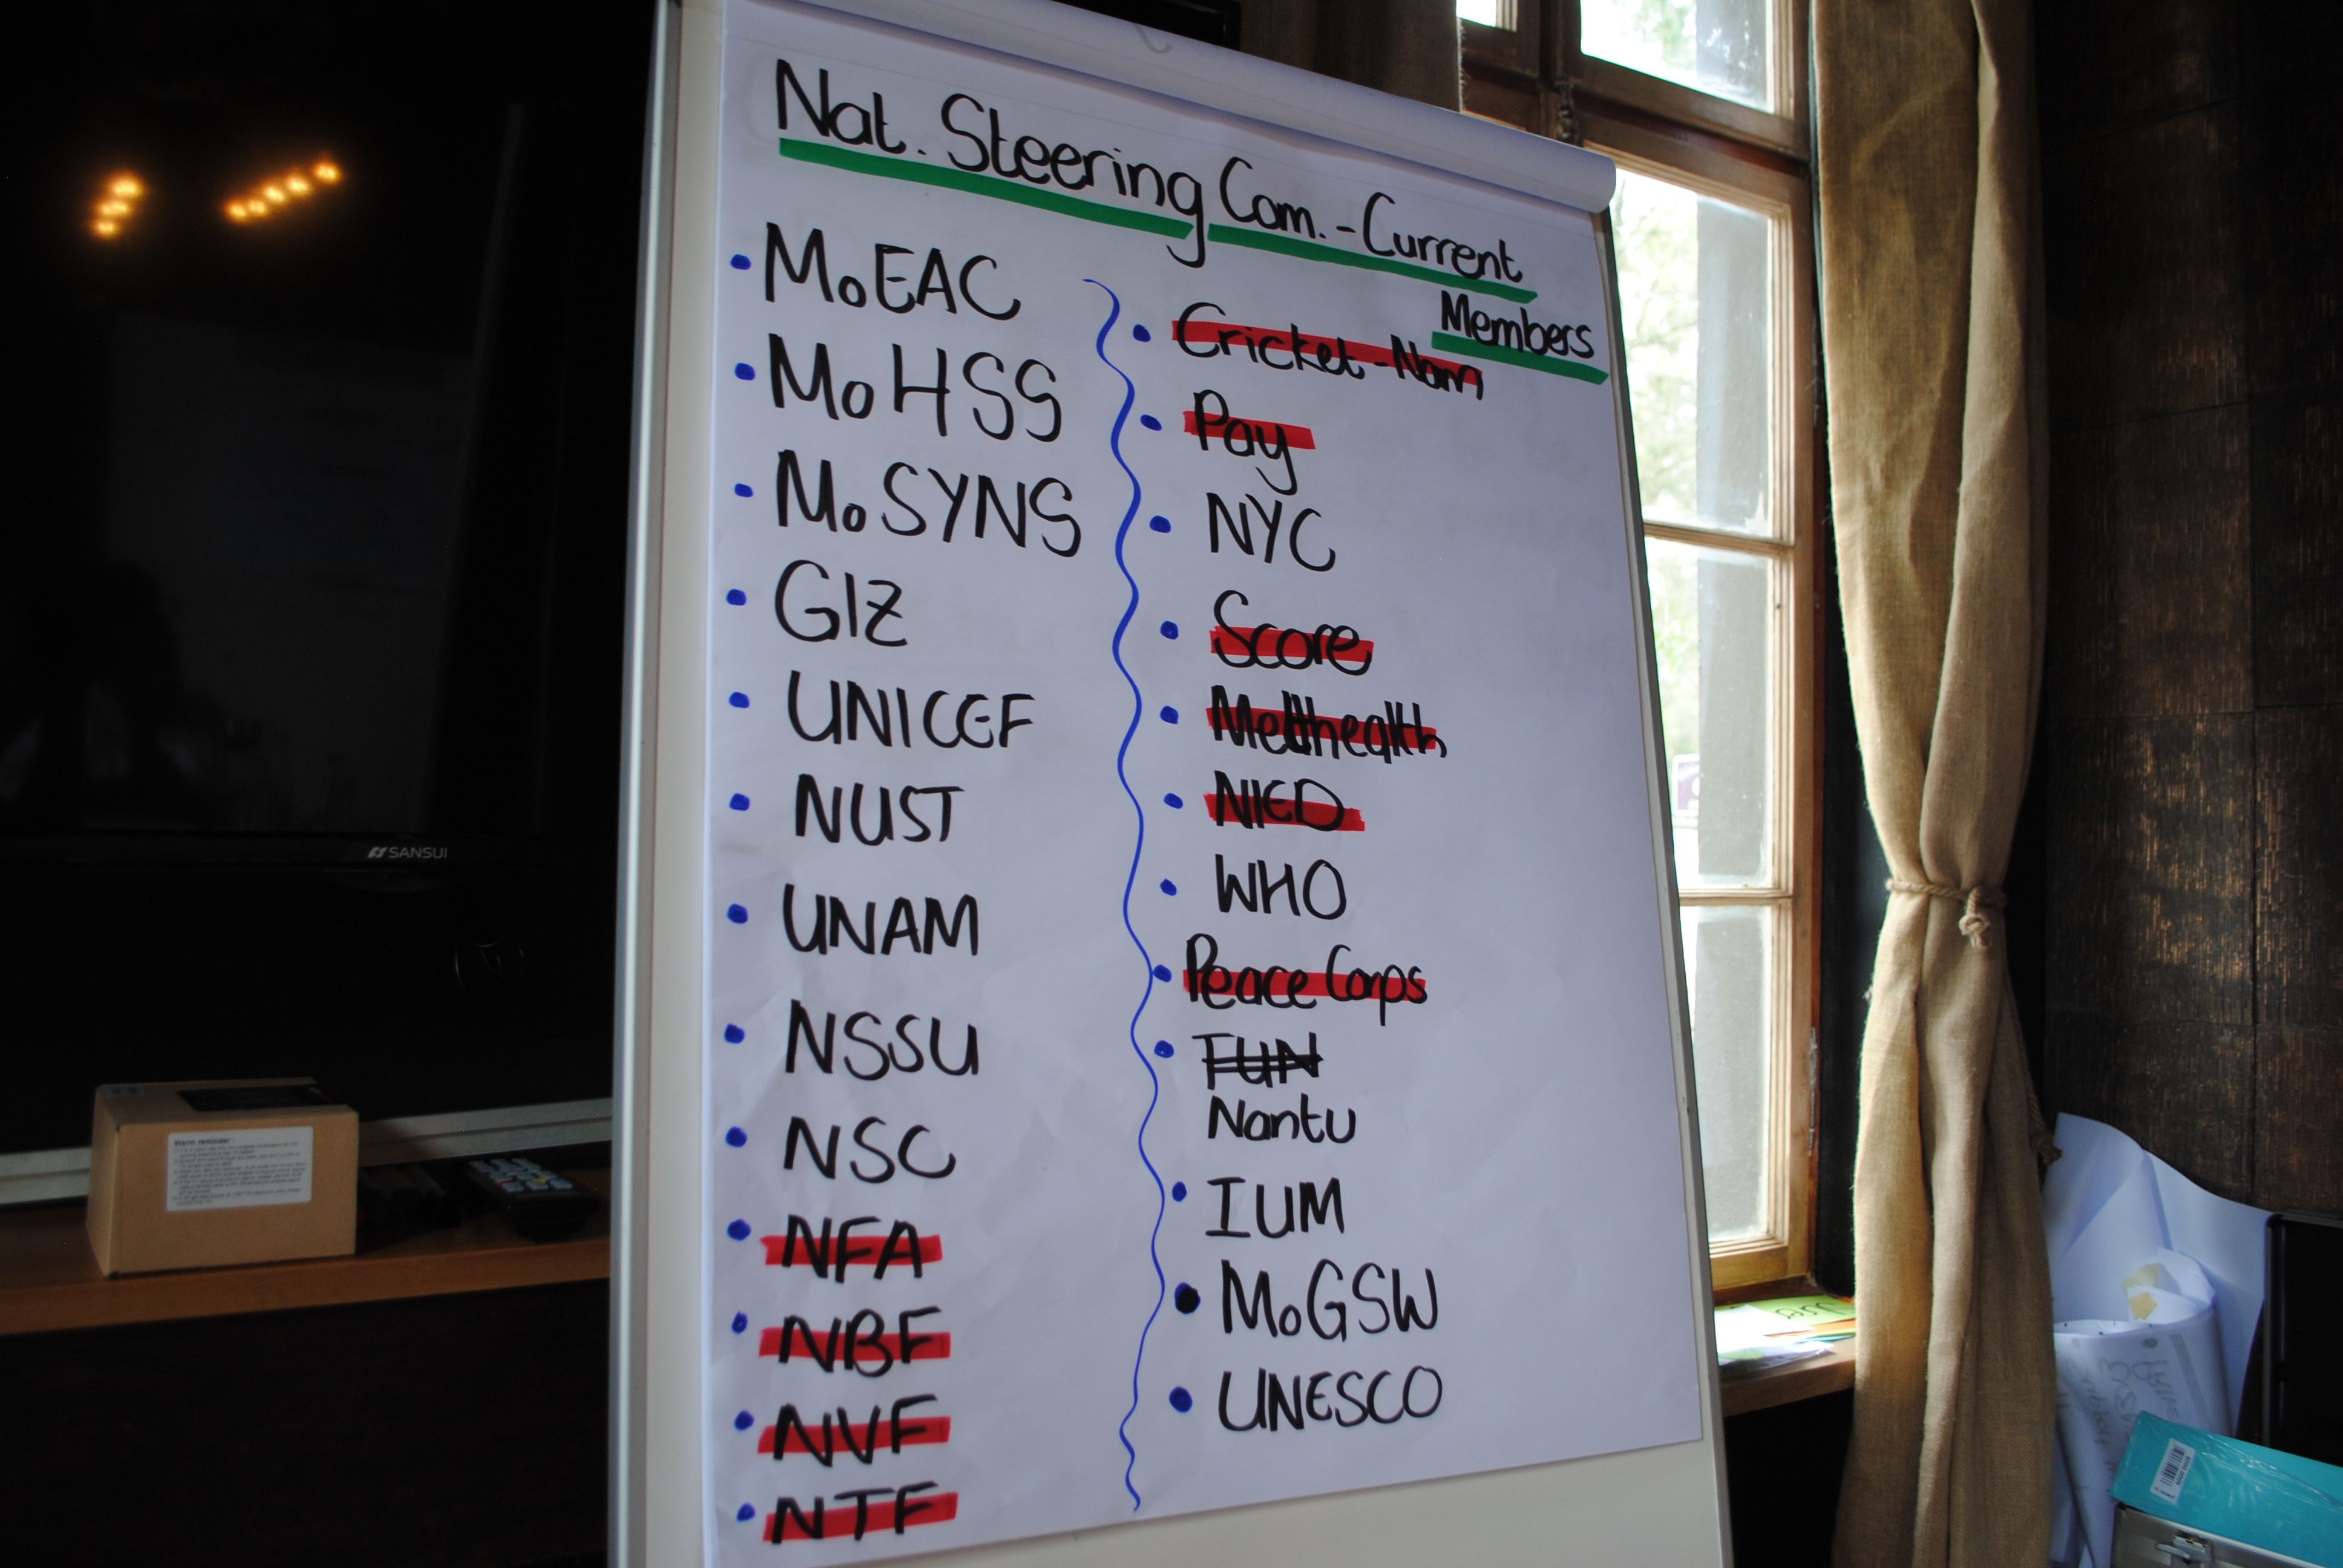 Nat. Steering Com. - Current
Members
• MoEAC
• MoHSS
• MoSYNS
• GIZ
• UNICEF
• NUST
• UNAM
• NSSU
• NSC
• NFA
• NBF
• NVF
• NTF
• Cricket-Nam
• Pay
• NYC
• Score
• NIED
• WHO
• Peace Corps
• TUN
Nantu
• IUM
• MoGSW
• UNESCO
SANSUI
Warm reminder: